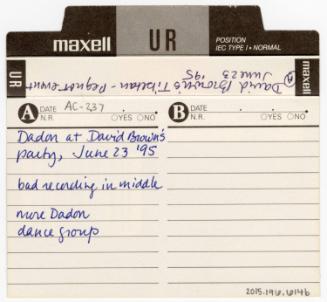 maxell
UR
POSITION
IEC TYPE I • NORMAL
maxell
UR
UR
A
David Brown's Tibetan - Request event
June 23 '95
A
DATE AC-237
N.R. YES NO
B
DATE
N.R. YES NO
Dadon at David Brown's
party, June 23 '95
bad recording in middle
more Dadon
dance group
2015.196.6146